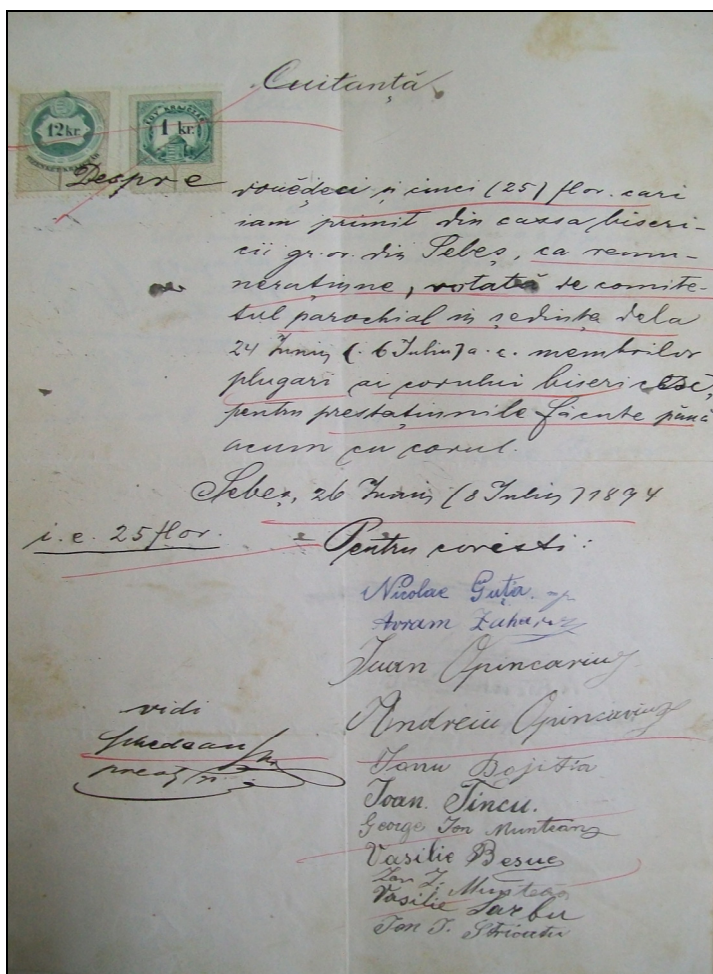 Cuitanță
12 kr.
EGY KRAJCZÁR
1 kr.
Despre
douĕdeci și cinci (25) flor. cari
iam primit din cassa biseri-
cii gr. or. din Sebeș, ca remu-
nerațiune, votată de comite-
tul parochial in ședința dela
24 Iuniu (6 Iuliu) a. c. membrilor
plugari ai corului bisericesc,
pentru prestațiunile făcute pănă
acum cu corul.
Sebeș, 26 Iuniu (8 Iuliu) 1894
i. e. 25 flor.
Pentru coristi:
Nicolae Guția
Avram
Iuan Opincariu
Andreiu Opincariu
vidi
Ioan Tincu.
George Ion Munteanu
Vasilie Besuc
Ion I. Muntean
Vasilie Sarbu
Ion I.